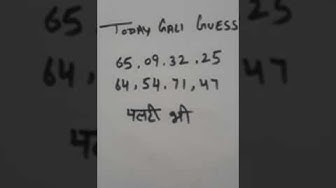 TODAY GALI GUESS
65.09.32.25
64,54.71,47
पलटी भी